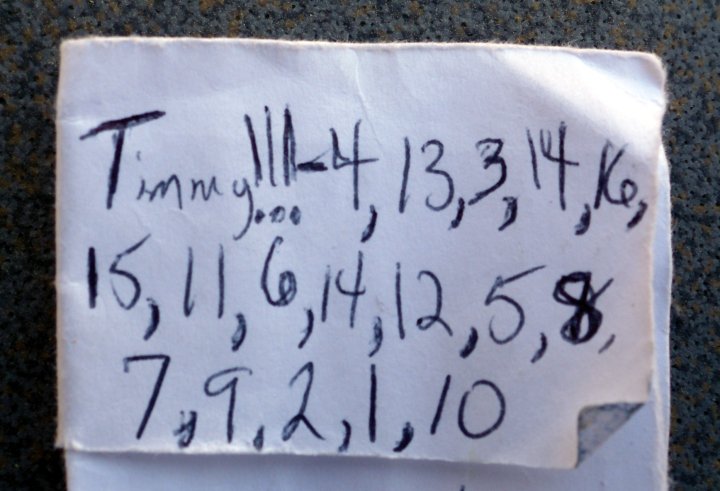 Timmy!!!-4, 13, 3, 14, 16,
15, 11, 6, 14, 12, 5, 8,
7, 9, 2, 1, 10